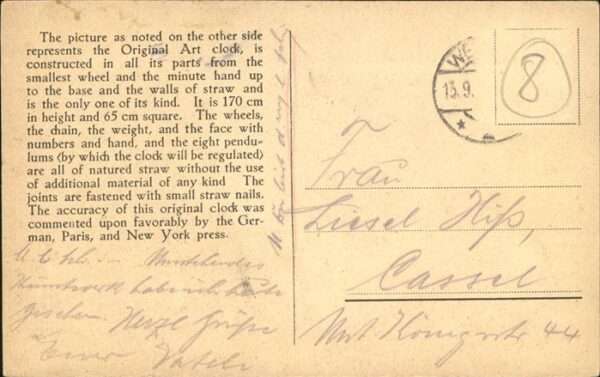 The picture as noted on the other side
represents the Original Art clock, is
constructed in all its parts from the
smallest wheel and the minute hand up
to the base and the walls of straw and
is the only one of its kind. It is 170 cm
in height and 65 cm square. The wheels,
the chain, the weight, and the face with
numbers and hand, and the eight pendu-
lums (by which the clock will be regulated)
are all of natured straw without the use
of additional material of any kind The
joints are fastened with small straw nails.
The accuracy of this original clock was
commented upon favorably by the Ger-
man, Paris, and New York press.
Umstehendes
Kunstwerk habe ich heute
gesehen. Herzl Grüße
Euer Vati
13.9.
8
Frau
Liesel Hiß,
Cassel
Unt. Königsstr 44